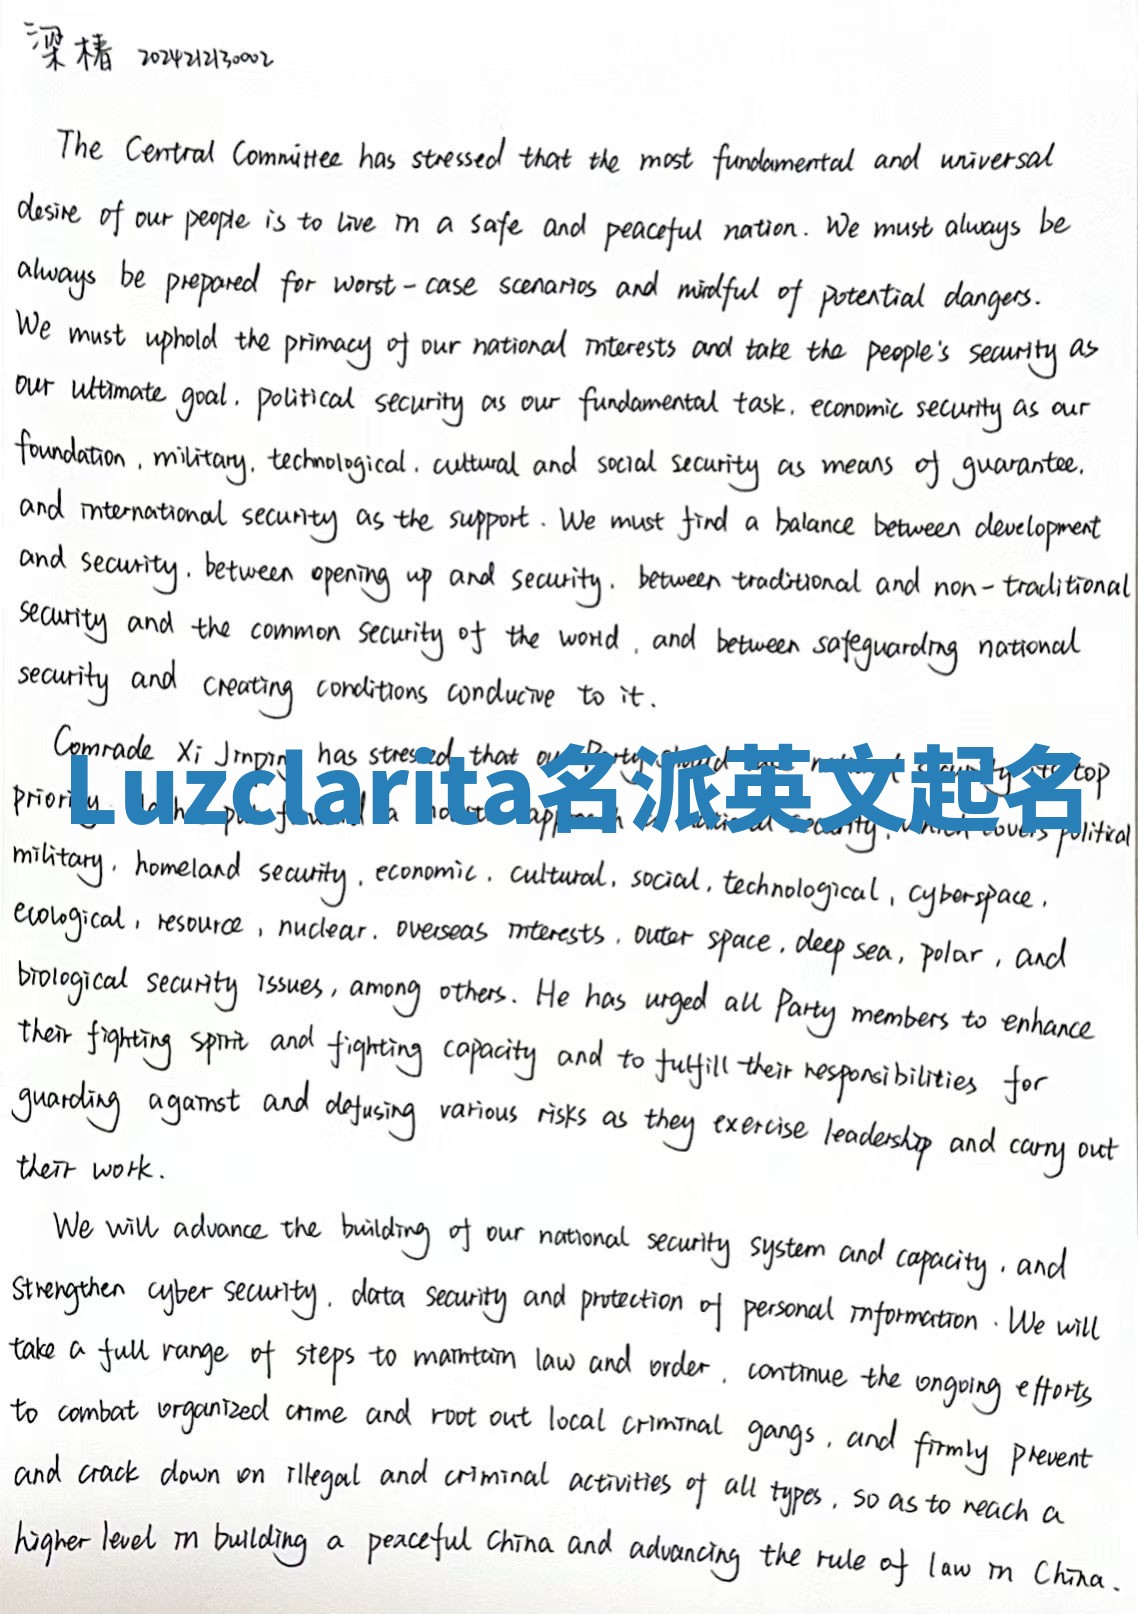 梁椿 2024212130002
The Central Committee has stressed that the most fundamental and universal
desire of our people is to live in a safe and peaceful nation. We must always be
always be prepared for worst-case scenarios and mindful of potential dangers.
We must uphold the primacy of our national interests and take the people's security as
our ultimate goal, political security as our fundamental task, economic security as our
foundation, military, technological, cultural and social security as means of guarantee,
and international security as the support. We must find a balance between development
and security, between opening up and security, between traditional and non-traditional
security and the common security of the world, and between safeguarding national
security and creating conditions conducive to it.
Comrade Xi Jinping has stressed that our Party should top
Luzclarita名派英文起名
priority, a security, which covers political
military, homeland security, economic, cultural, social, technological, cyberspace,
ecological, resource, nuclear, overseas interests, outer space, deep sea, polar, and
biological security issues, among others. He has urged all Party members to enhance
their fighting spirit and fighting capacity and to fulfill their responsibilities for
guarding against and defusing various risks as they exercise leadership and carry out
their work.
We will advance the building of our national security system and capacity, and
strengthen cyber security, data security and protection of personal information. We will
take a full range of steps to maintain law and order, continue the ongoing efforts
to combat organized crime and root out local criminal gangs, and firmly prevent
and crack down on illegal and criminal activities of all types, so as to reach a
higher level in building a peaceful China and advancing the rule of law in China.